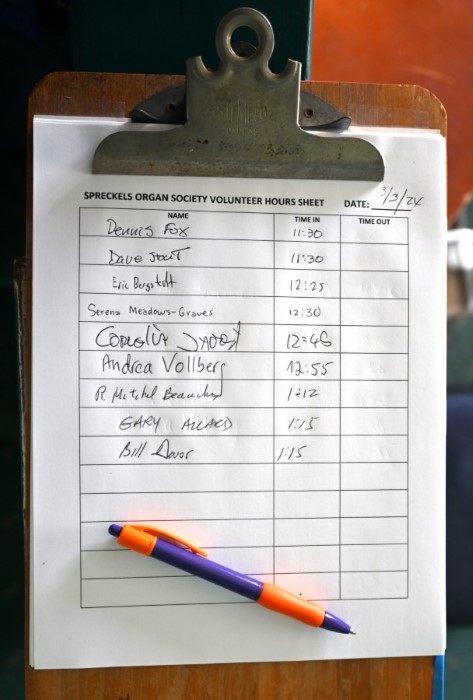 SPRECKELS ORGAN SOCIETY VOLUNTEER HOURS SHEET DATE: /3/24
NAME TIME IN TIME OUT
Dennis Fox 11:30
Dave 11:30
Eric Bergstedt 12:25
Serena Meadows-Graves 12:30
12:46
Andrea Vollberg 12:55
R. Mitchel Beauchamp 1:12
GARY ALLARD 1:15
Bill 1:15